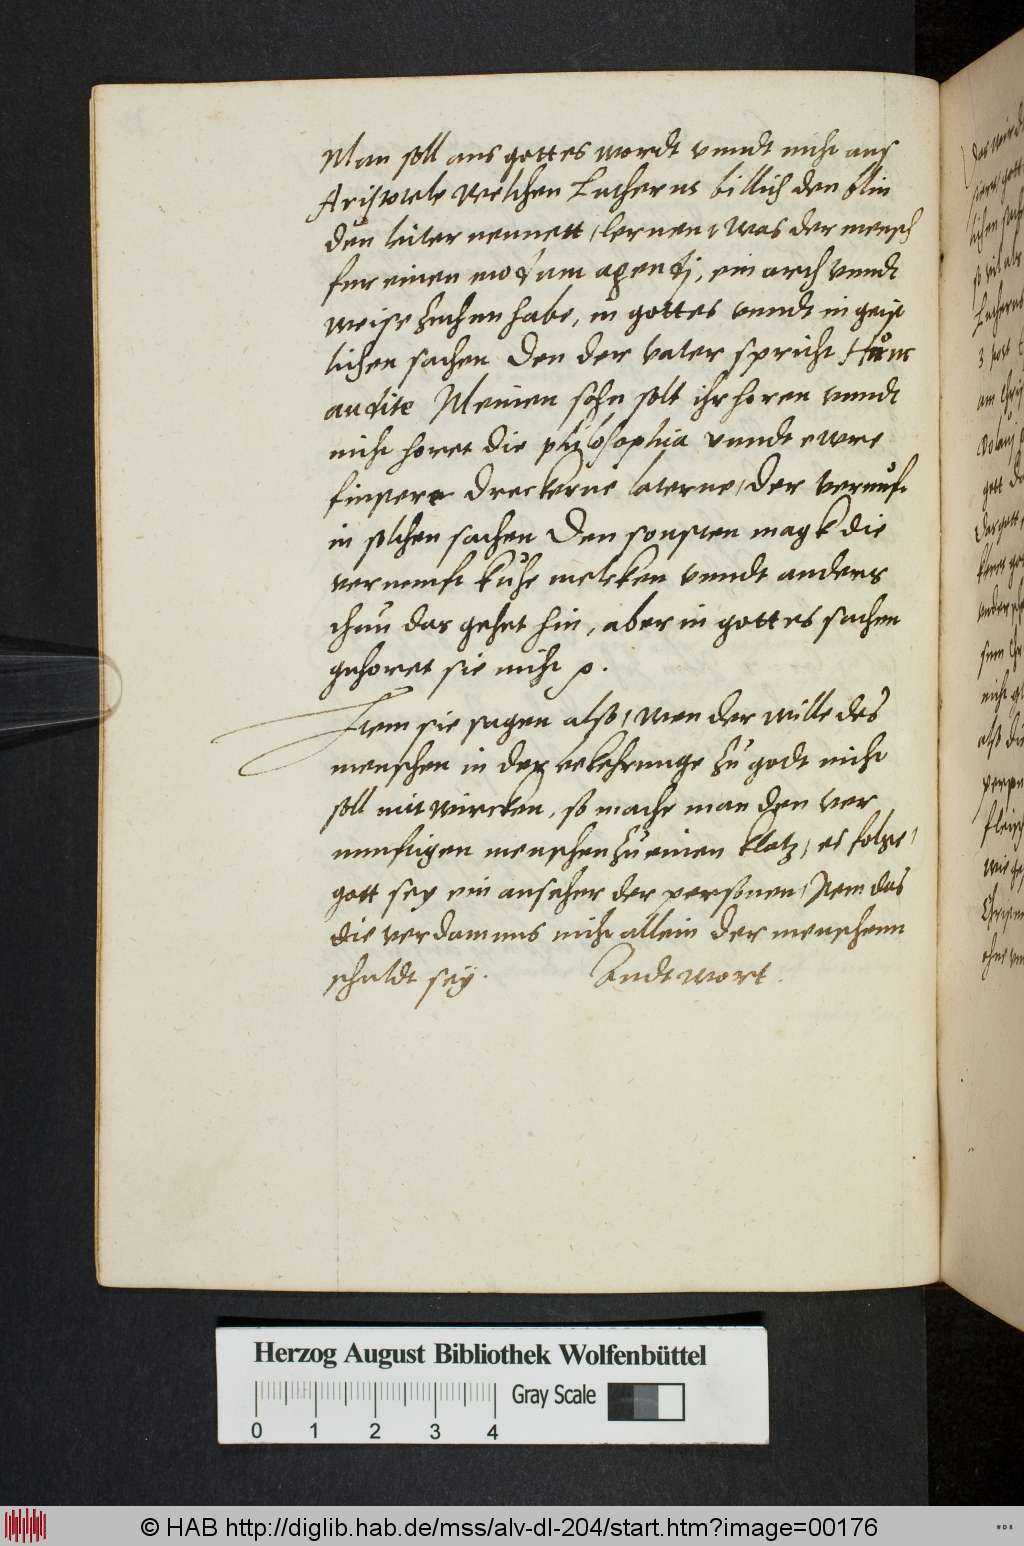 Man soll aus gottes wordt vnndt nicht aus
Aristotele welchen Lutherus billich den blin
den leiter nennett / lernen / was der mensch
fur einen modum agendi, ein arth vnndt
weise zuthun habe, in gottes vnndt in geist
lichen sachen Den der vater spricht Hunc
audite Meinen sohn solt ihr horen vnndt
nicht horet die philosophia vnndt ewre
finstere dreckerne laterne / der vernuft
in solchen sachen Den sonsten magk die
vernunft kuhe melcken vnndt anders
thun das gehet hin, aber in gottes sachen
gehoret sie nicht
Item sie sagen also / wen der wille des
menschen in der bekehrunge zu godt nicht
soll mit wircken, so macht man den ver
nunftigen menschen zu einen klotz / es folge /
gott sey ein anseher der personen / Item das
die verdamnus nicht allein der menschenn
schuldt sey. Andtwort.
Herzog August Bibliothek Wolfenbüttel
Gray Scale
0 1 2 3 4
© HAB http://diglib.hab.de/mss/alv-dl-204/start.htm?image=00176